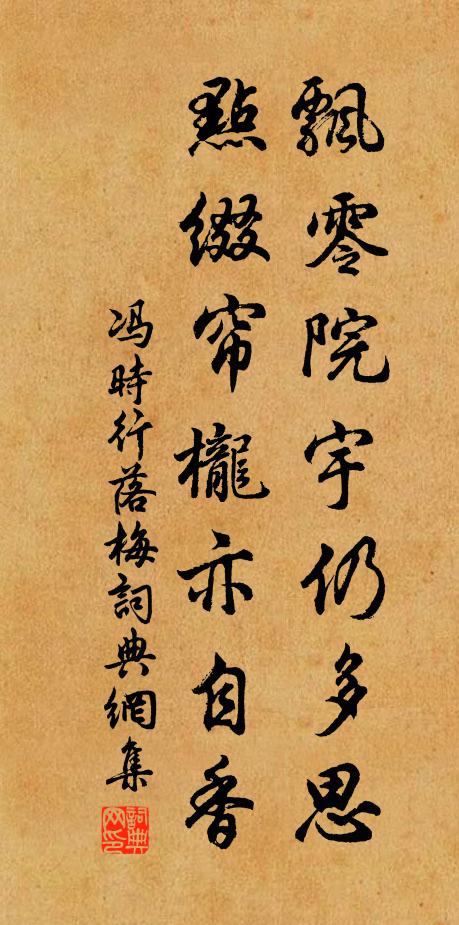 飄零院宇仍多思
點綴帘櫳亦自香
冯時行落梅詞典網集
詞典网印